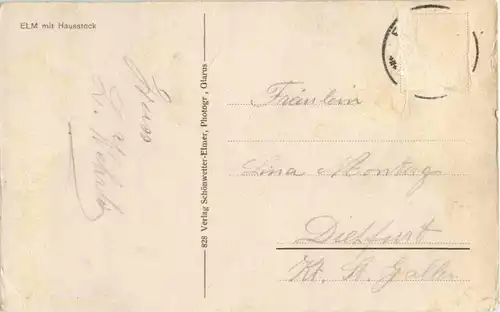 ELM mit Hausstock
Gruss
828 Verlag Schönwetter-Elmer, Photogr., Glarus
Fräulein
Lina Montag
Dietfurt
Kt. St. Gallen